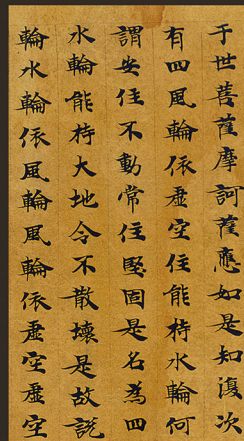 于世菩薩摩訶薩應如是知復次
有四風輪依虛空住能持水輪何
謂安住不動常住堅固是名為四
水輪能持大地令不散壞是故說
輪水輪依風輪風輪依虛空虛空